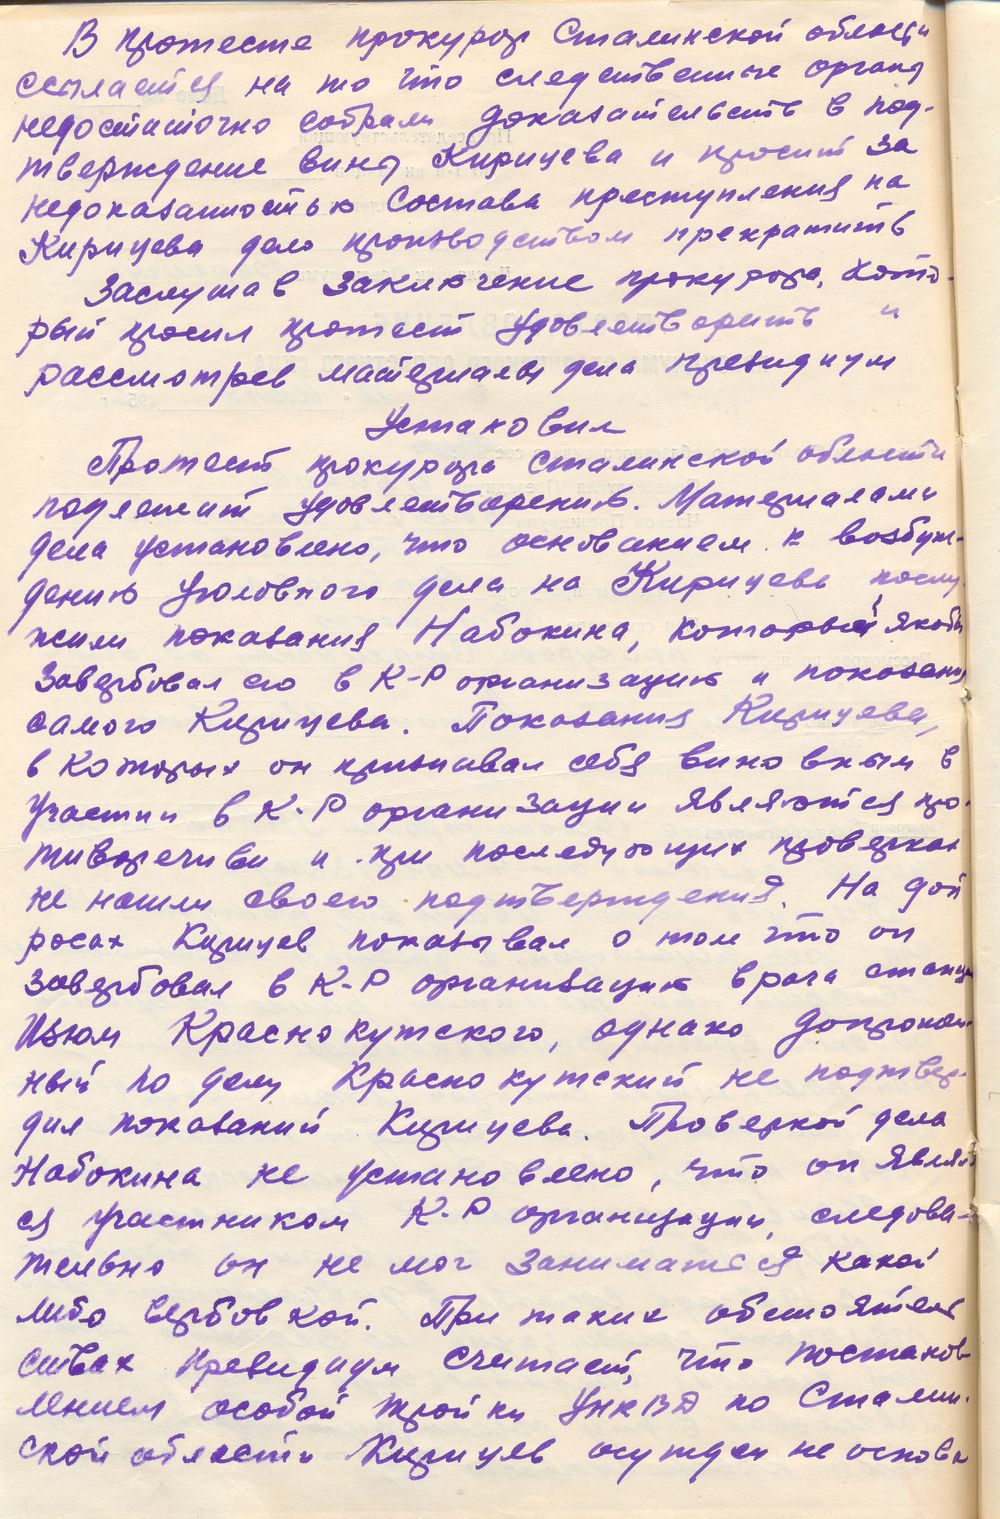 В протесте прокурор Сталинской области
ссылается на то что следственные органы
недостаточно собрали доказательств в под-
тверждение вины Кирицева и просит за
недоказанностью состава преступления на
Кирицева дело производством прекратить
Заслушав заключение прокурора, кото-
рый просил протест удовлетворить и
рассмотрев материалы дела президиум
Установил
Протест прокурора Сталинской области
подлежит удовлетворению. Материалами
дела установлено, что основанием к возбуж-
дению уголовного дела на Кирицева послу-
жили показания Набокина, который якобы
завербовал его в К-Р организацию и показания
самого Кирицева. Показания Кирицева,
в которых он признавал себя виновным в
участии в К-Р организации являются про-
тиворечивы и при последующих проверках
не нашли своего подтверждения. На доп
росах Кирицев показывал о том что он
завербовал в К-Р организацию врача станции
Изюм Краснокутского, однако допрошен
ный по делу Краснокутский не подтвер-
дил показаний Кирицева. Проверкой дела
Набокина не установлено, что он являл
ся участником К-Р организации, следова-
тельно он не мог заниматься какой
либо вербовкой. При таких обстоятель
ствах президиум считает, что постанов
лением особой тройки УНКВД по Сталин-
ской области Кирицев осужден не основа